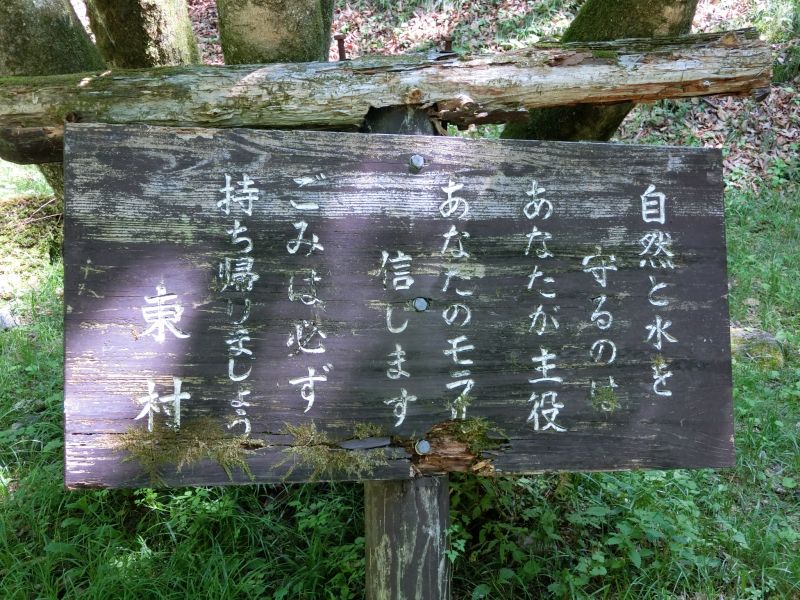 自然と水を
守るのは
あなたが主役
あなたのモラル
信します
ごみは必ず
持ち帰りましょう
東村